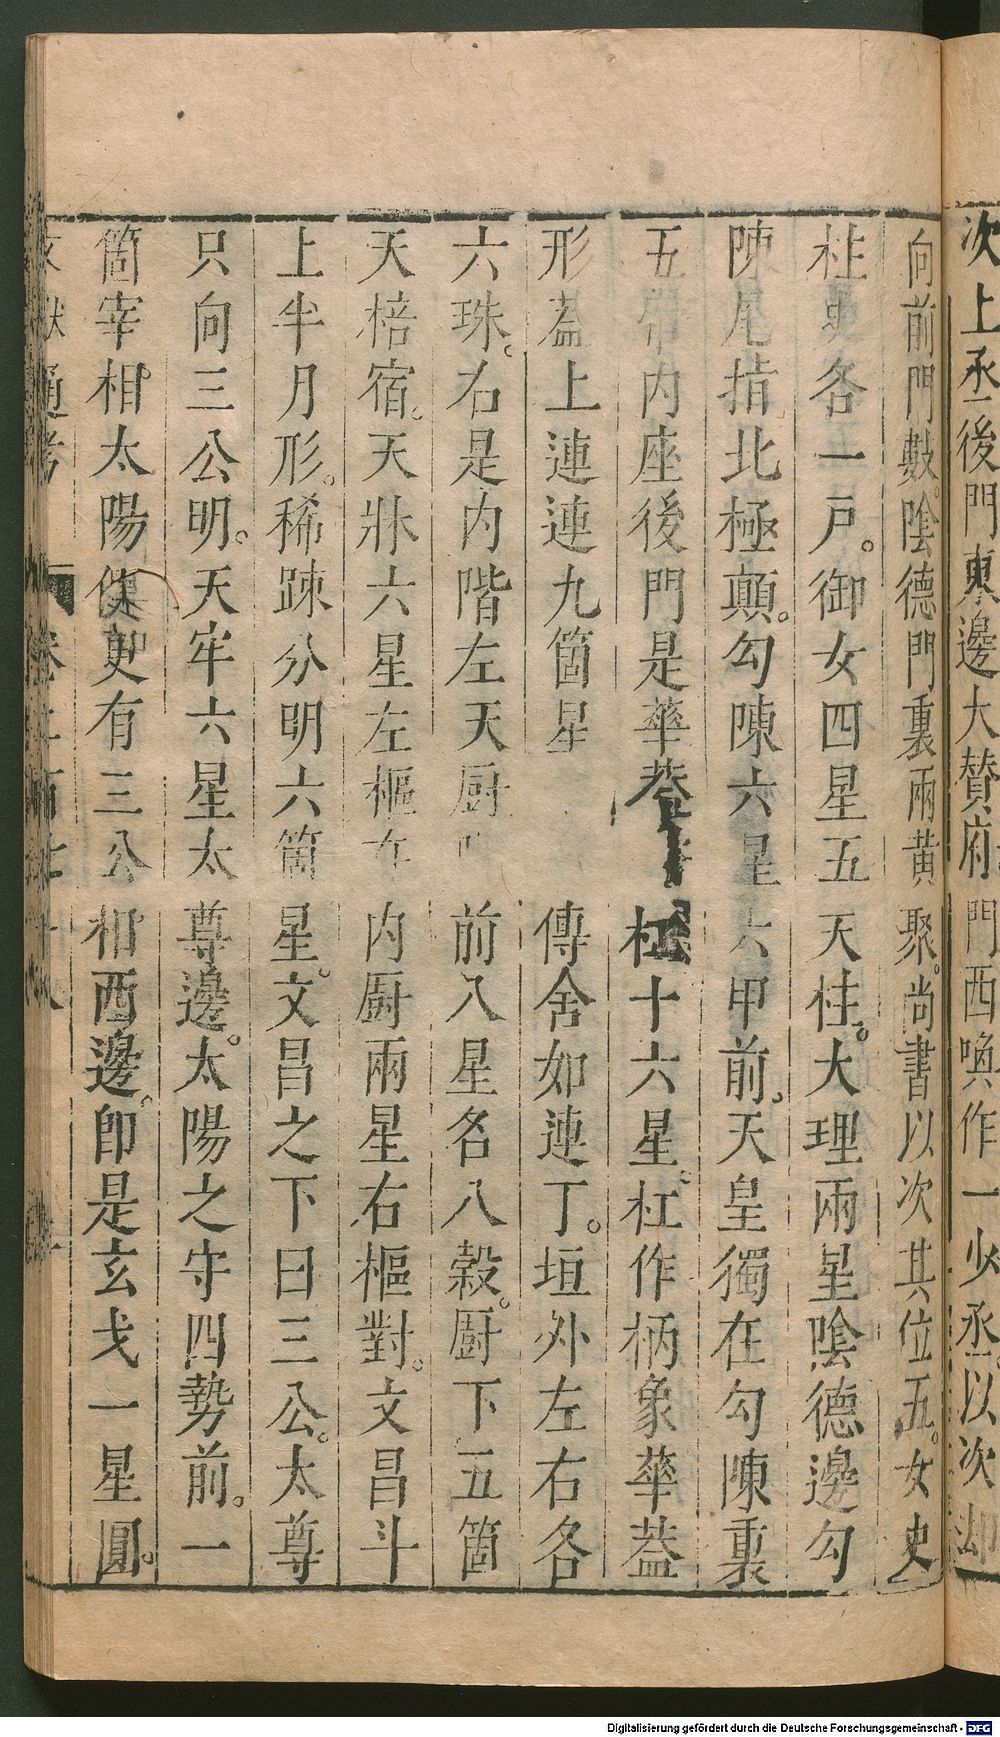 次上丞後門東邊大贊府門西喚作一少丞以次却
向前門數陰德門裏兩黃聚尚書以次其位五女史
柱史各一戸御女四星五天柱大理兩星陰德邊勾
陳尾指北極顛勾陳六星六甲前天皇獨在勾陳裏
五帝內座後門是華蓋杠十六星杠作柄象華蓋
形蓋上連連九箇星傳舍如連丁垣外左右各
六珠右是內階左天厨前八星名八穀厨下五箇
天棓宿天牀六星左樞在內厨兩星右樞對文昌斗
上半月形稀踈分明六箇星文昌之下曰三公太尊
只向三公明天牢六星太尊邊太陽之守四勢前一
箇宰相太陽側更有三公相西邊即是玄戈一星圓
文獻通考 卷二百七十八
Digitalisierung gefördert durch die Deutsche Forschungsgemeinschaft - DFG